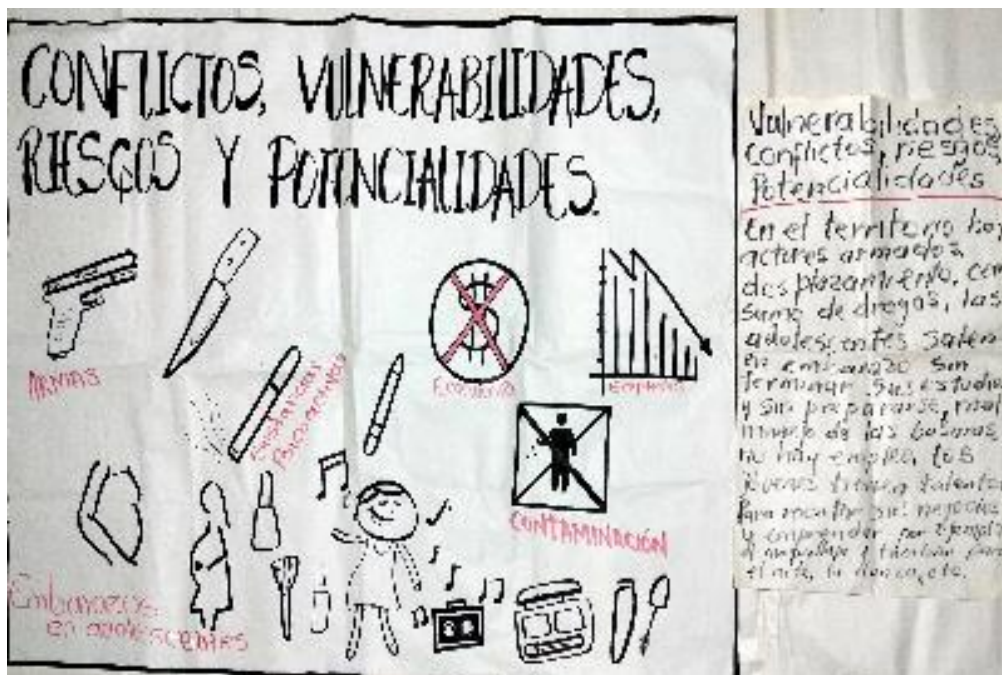 CONFLICTOS, VULNERABILIDADES,
RIESGOS Y POTENCIALIDADES.
ARMAS
Sustancias
Psicoactivas
Economía
Empleos
CONTAMINACIÓN
Embarazos
en adolescentes
Vulnerabilidades
Conflictos, riesgos
Potencialidades
En el territorio hay
actores armados
desplazamiento, con
sumo de drogas, las
adolescentes salen
en embarazo sin
terminar sus estudios
y sin prepararse, mal
manejo de las basuras
no hay empleo, los
jóvenes tienen talentos
para montar sus negocios
y emprender por ejemplo
el maquillaje y también para
el arte, la danza, etc.